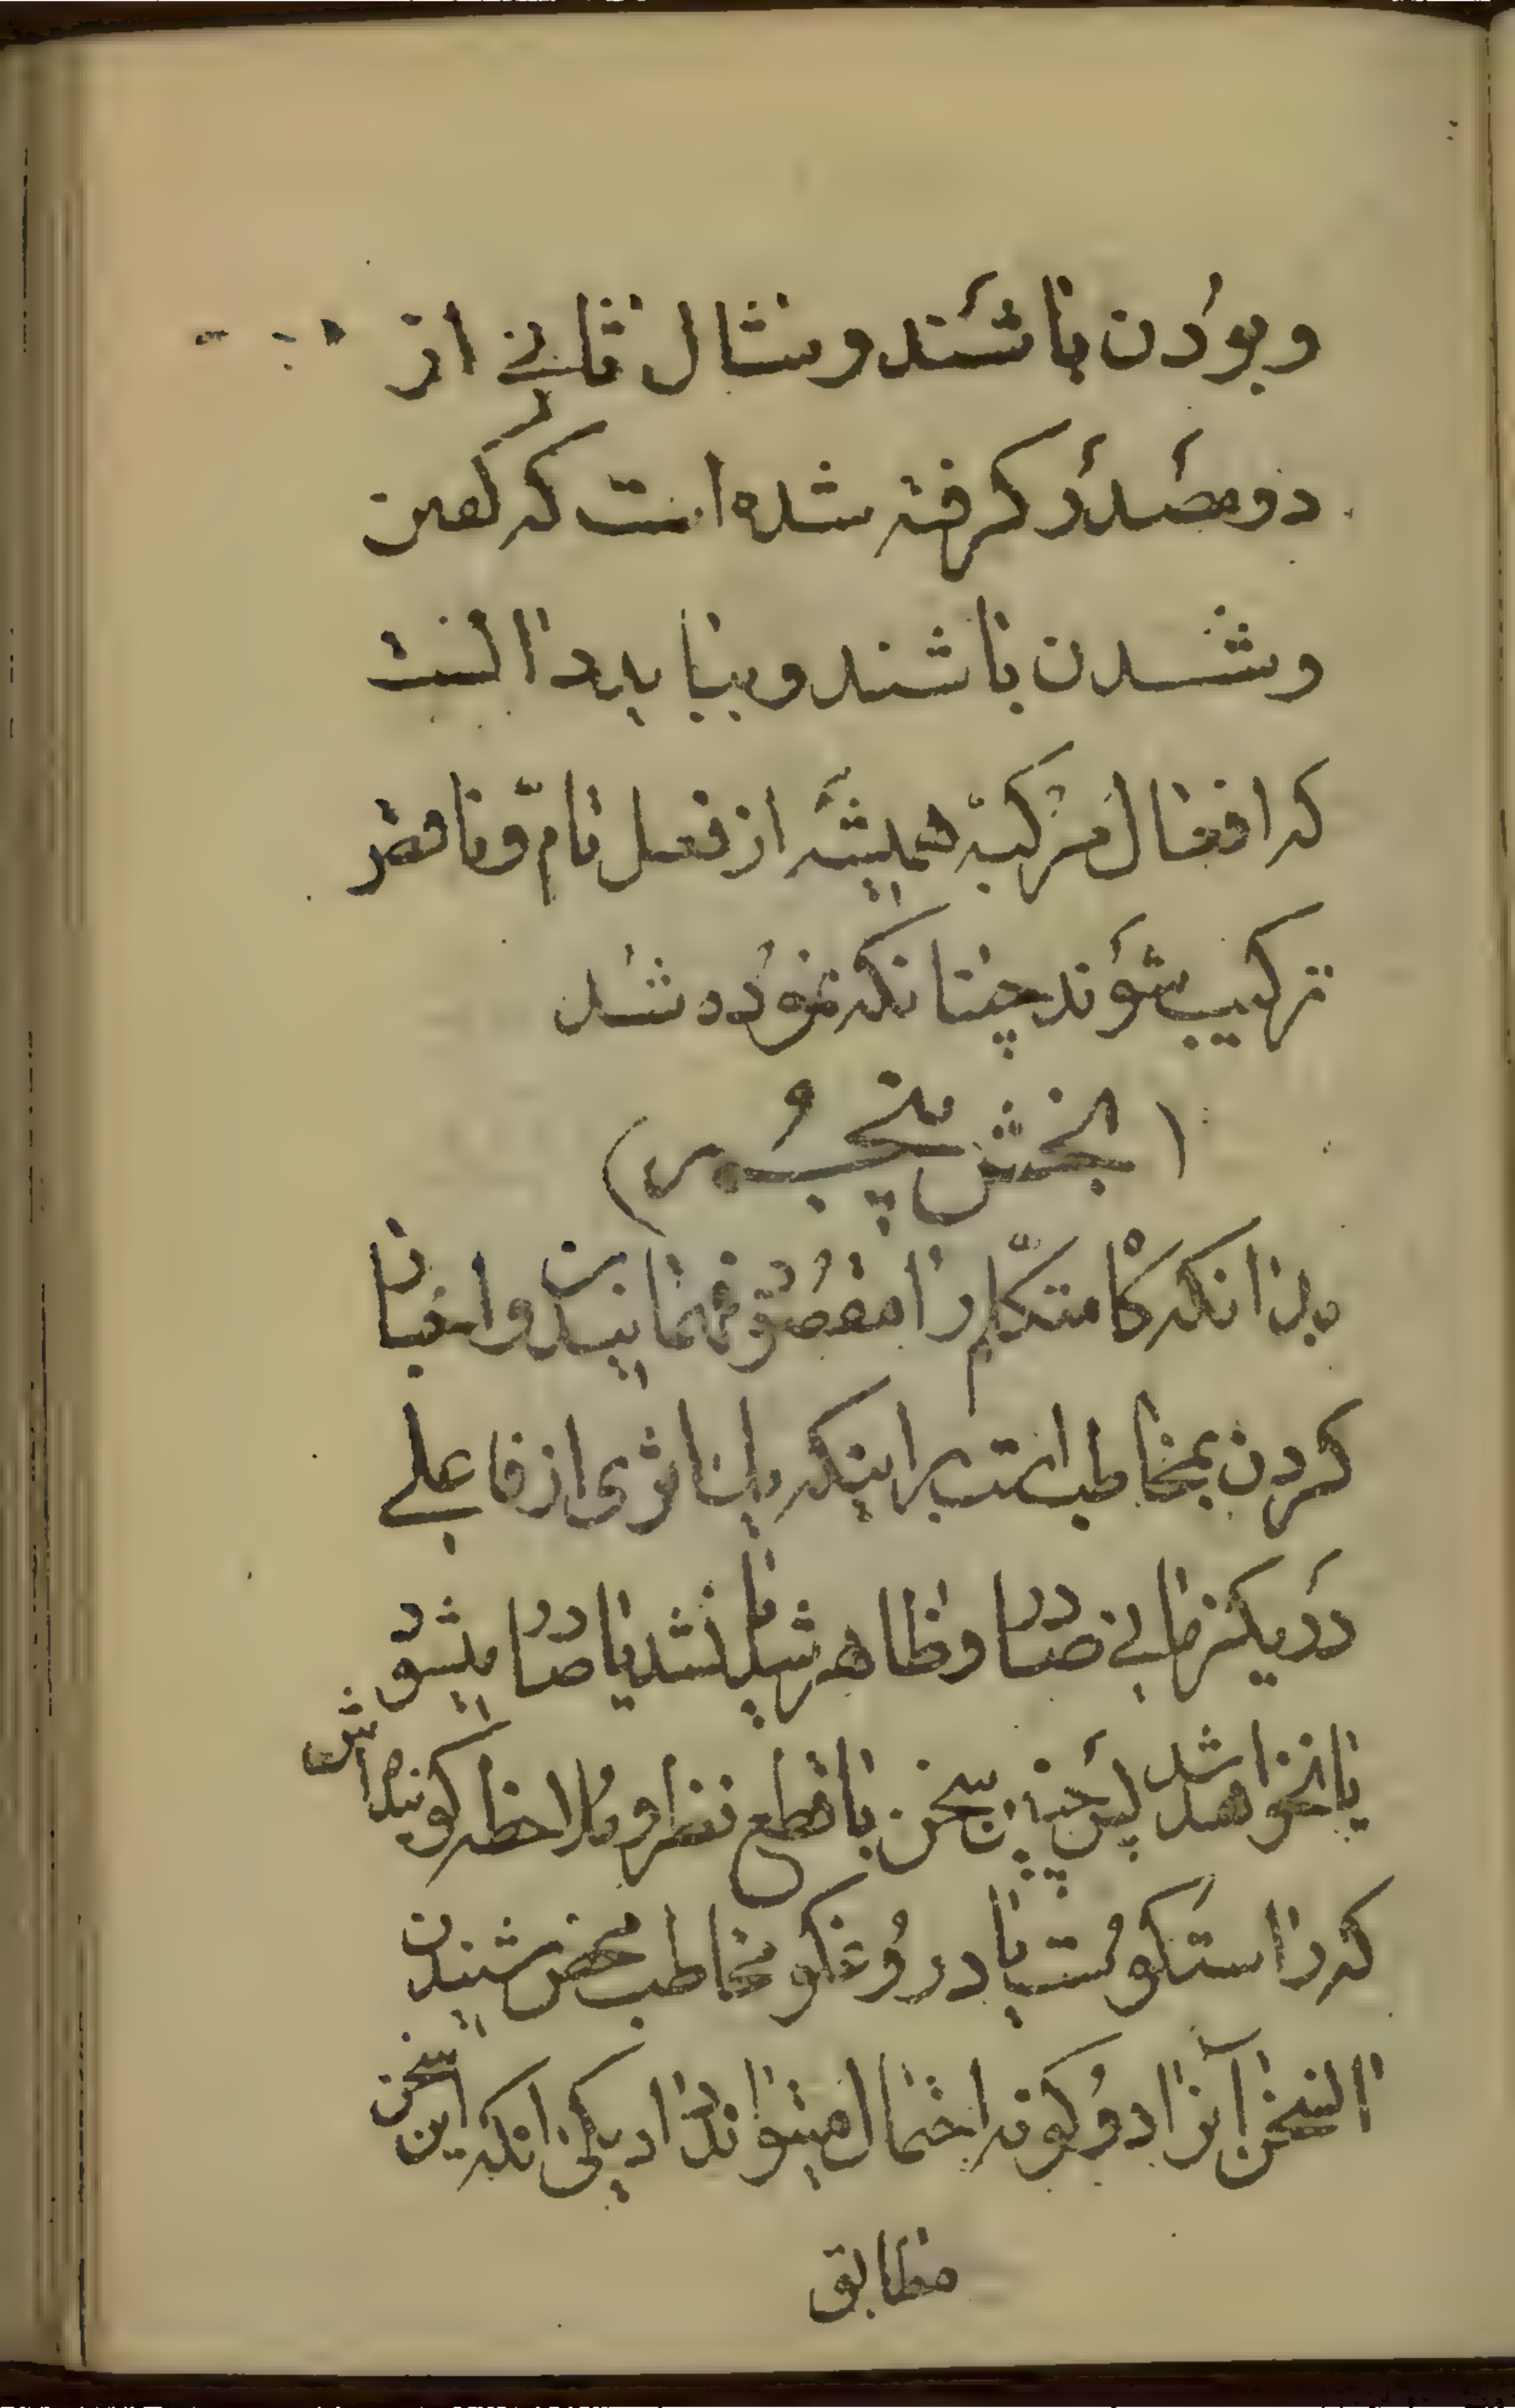 وبودن باشند ومثال ثانی از
دو مصدر کرفته شده است که کفتن
وشدن باشند وبباید دانست
که افعال مرکبه همیشه از فعل تام وناقص
ترکیب شوند چنانکه نموده شد
(بخش پنجم)
بدانکه کاه متکلم را مقصود فهمانیدن واخبار
کردن بمخاطب است براینکه یک اثری از فاعلی
در یکزمانی صادر وظاهر شد یا نشد یا صادر میشود
یا نخواهد شد پس چنین سخن با قطع نظر وملاحظه کوینده‌اش
که راستکوست یا دروغکو مخاطب محض شنیدن
انسخن آنرا دو کونه احتمال میتواند داد یکی انکه این سخن
مطابق